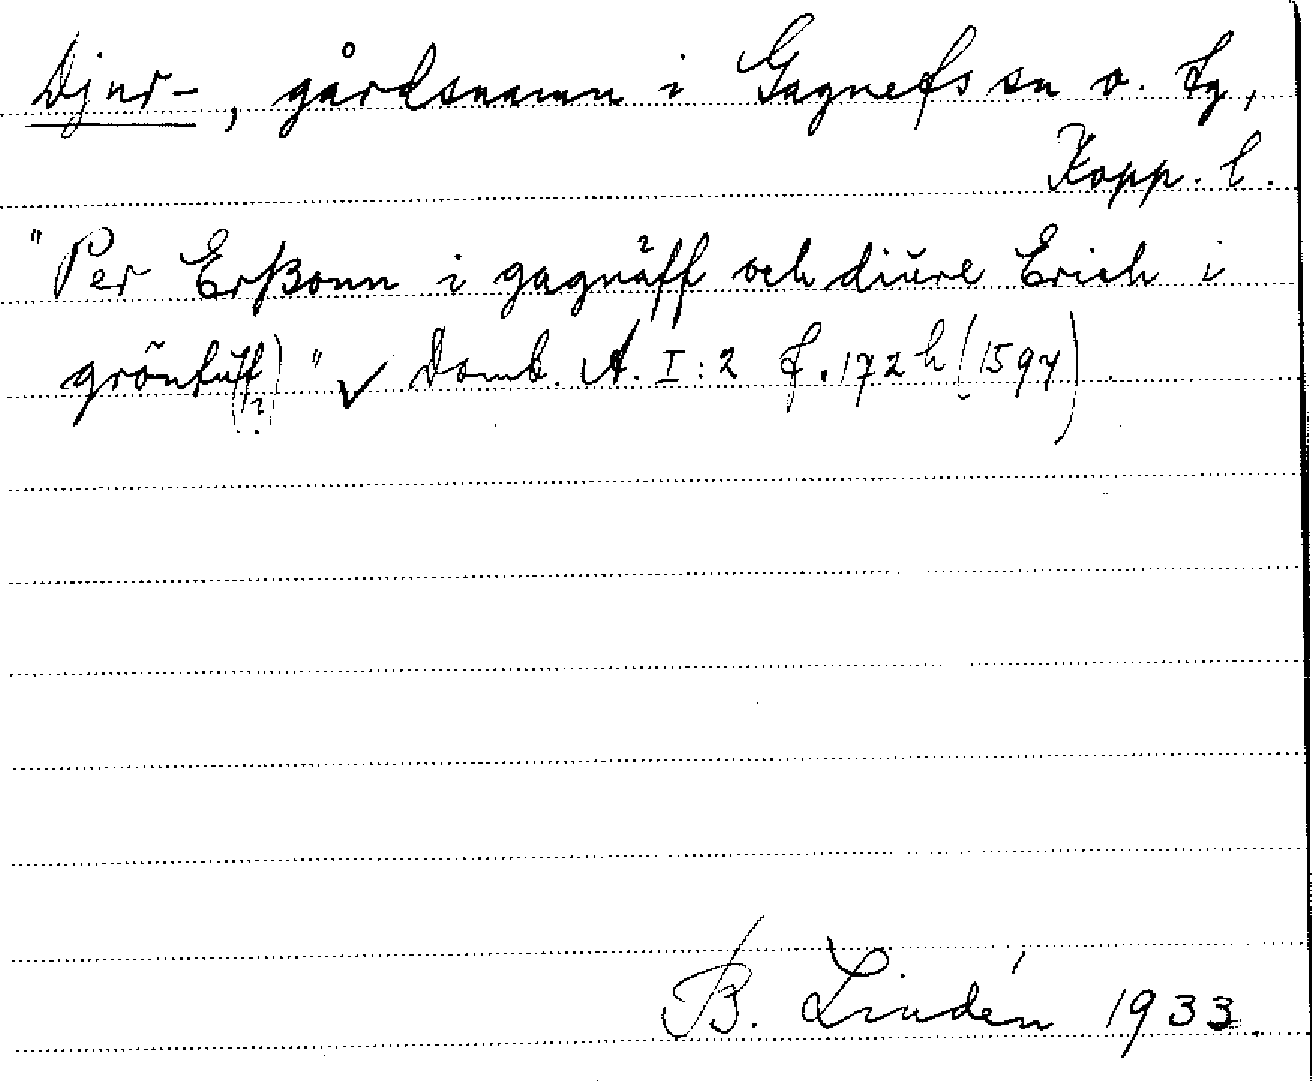 Djur-, gårdsnamn i Gagnefs sn o. tg,
Kopp. l.
"Per Erßonn i gagnäff och diŭre Erich i
grönbŭ " ✓ Domb. A. I:2 f. 172 h (1597).
B. Lindén 1933.